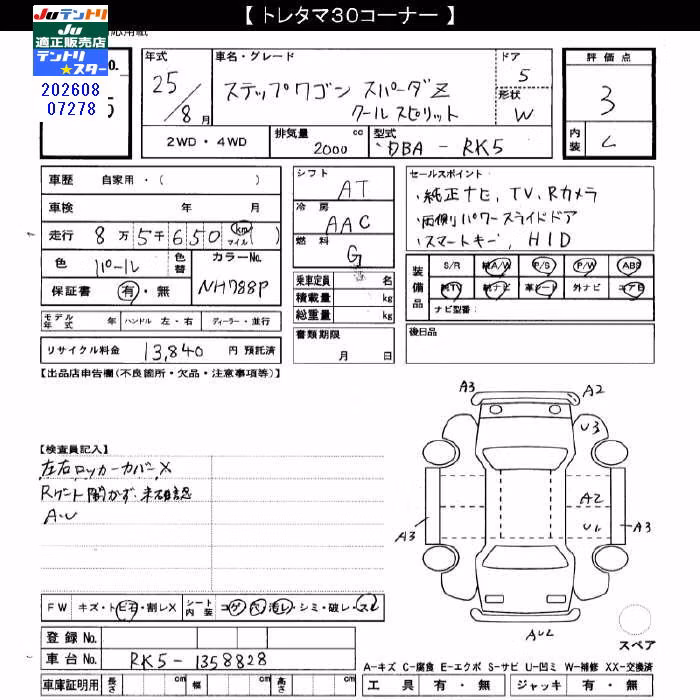 【 トレタマ30コーナー 】
JUテントリ
JU
適正販売店
テントリ
★スター
202608
07278
年式
25/8月
車名・グレード
ステップワゴン スパーダZ
クールスピリット
ドア
5
形状
W
評価点
3
内装
C
2WD・4WD
排気量 2000 cc
型式 DBA-RK5
車歴 自家用・( )
車検 年 月
走行 8万5千650 km マイル ( )
色 パール
色替
カラーNo.
NH788P
保証書 有・無
モデル年式 年 ハンドル 左・右 ディーラー・並行
リサイクル料金 13,840 円 預託済
シフト
AT
冷房
AAC
燃料
G
乗車定員 名
積載量 kg
総重量 kg
書類期限
月 日
セールスポイント
・純正ナビ、TV、Rカメラ
・両側パワースライドドア
・スマートキー、HID
装備品
S/R 純A/W P/S P/W ABS
純TV 純ナビ 革シート 外ナビ エアB
ナビ型番:
後日品
【出品店申告欄(不良箇所・欠品・注意事項等)】
【検査員記入】
左右ロッカーカバーX
Rゲート開かず、未確認
A・U
A3
A2
U3
A2
A3
U1
A3
スペア
FW キズ・トビ石・割レX シート内装 コゲ・穴・汚レ・シミ・破レ・スレ
登録No.
車台No. RK5-1358828
車庫証明用 長さ cm 幅 cm 高さ cm
A-キズ C-腐食 E-エクボ S-サビ U-凹ミ W-補修 XX-交換済
工具 有・無 ジャッキ 有・無